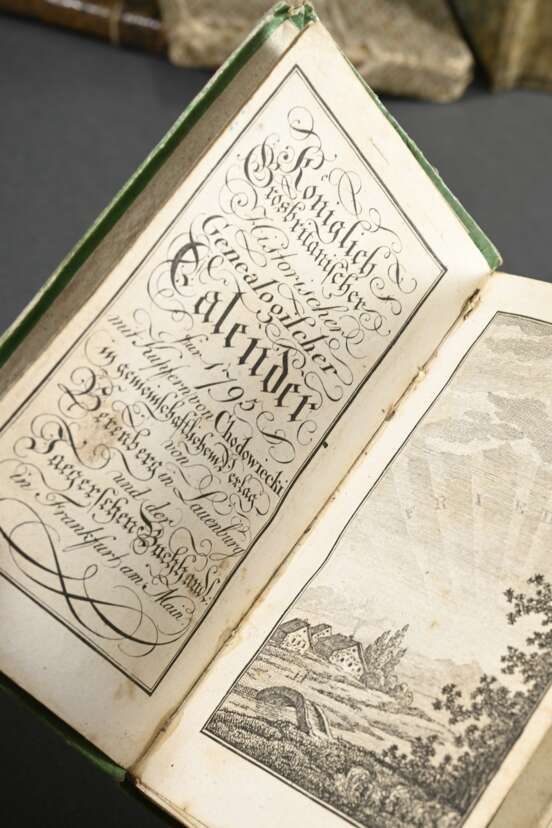 Königlich
Grosbritanischer
Historischer
Genealogischer
Calender
für 1795
mit Kupfern von Chodowiecki
in gemeinschaftlichem Verlag
von
Berenberg in Lauenburg
und der
Jaegerschen Buchhandl.
in Frankfurt am Main.